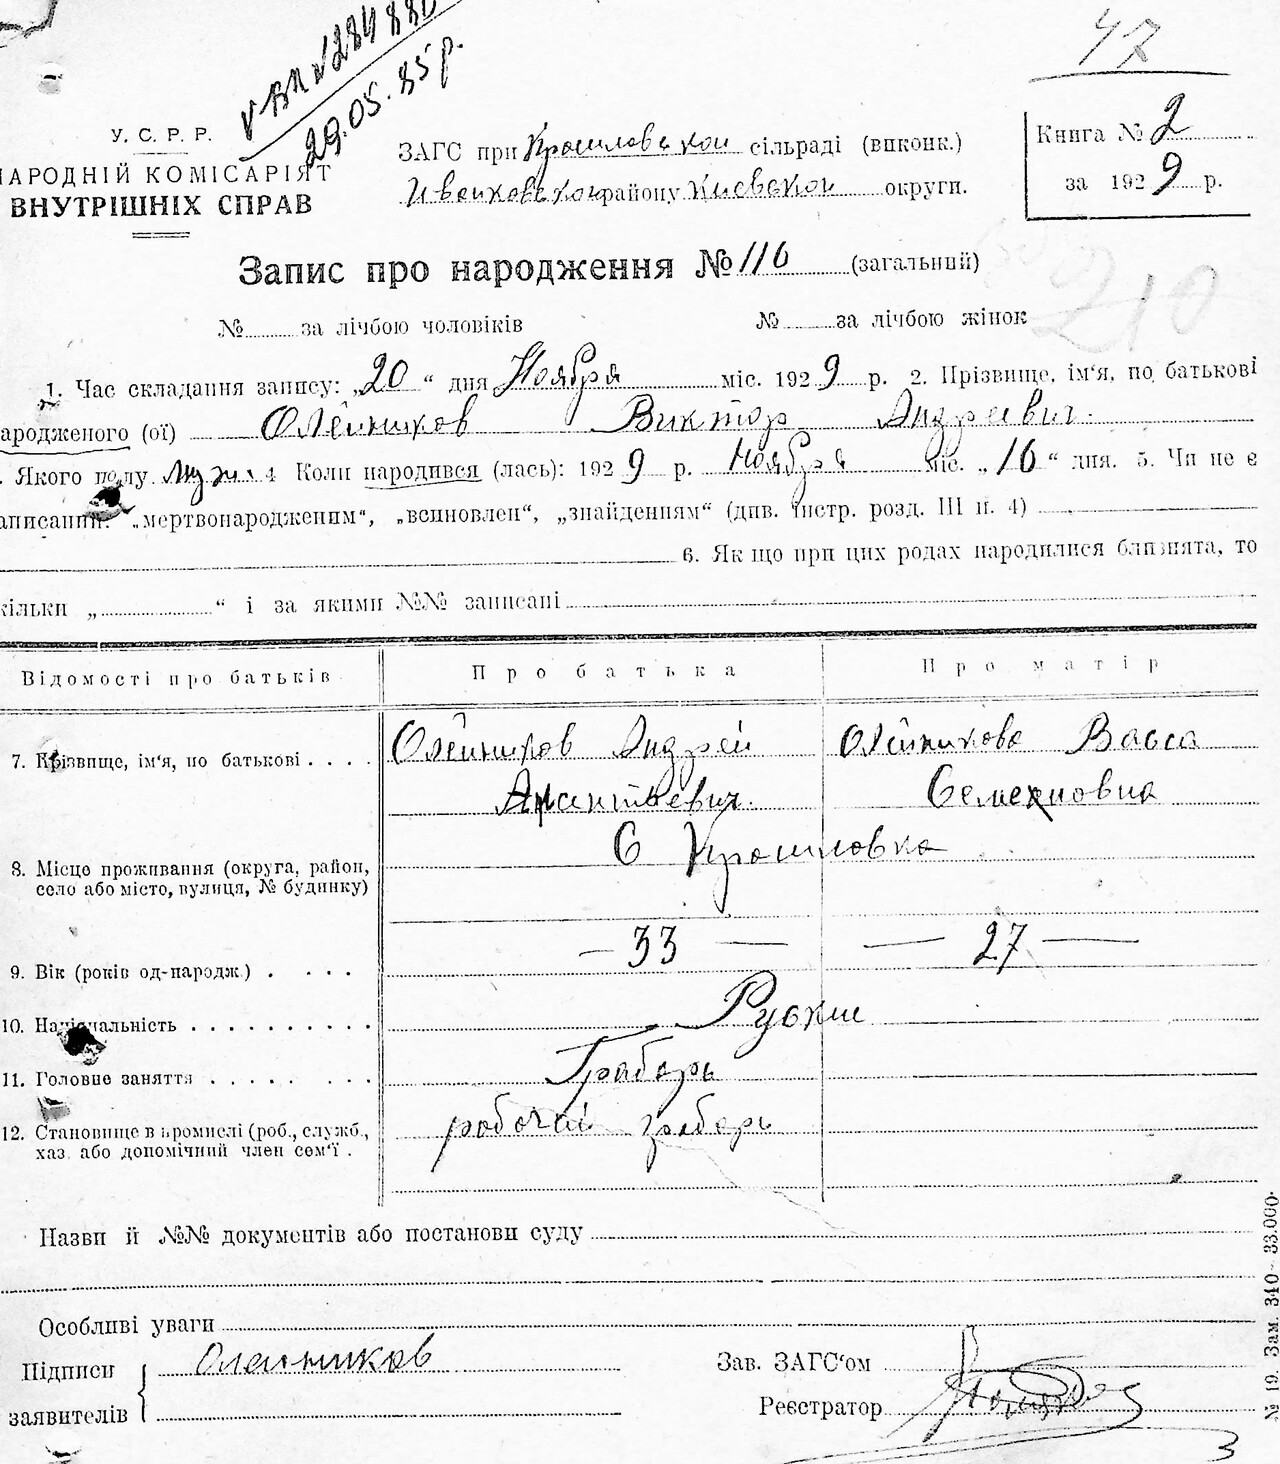 47
V-БК №284880
29.05.85 р.
У. С. Р. Р.
НАРОДНІЙ КОМІСАРІЯТ
ВНУТРІШНІХ СПРАВ
ЗАГС при Крошловской сільраді (виконк.)
району Киевской округи.
Книга № 2
за 1929 р.
Запис про народження № 116 (загальний)
210
№ за лічбою чоловіків № за лічбою жінок
1. Час складання запису: „20“ дня Ноября міс. 1929 р. 2. Прізвище, ім'я, по батькові
ародженого (ої) Олейников Виктор Андреевич.
. Якого полу муж. 4 Коли народився (лась): 1929 р. Ноября міс. „16“ дня. 5. Чи не є
аписаний: „мертвонародженим“, „всиновлен“, „знайденням“ (див. інстр. розд. III п. 4)
6. Якщо при цих родах народилися близнята, то
кільки „ “ і за якими №№ записані
Відомості про батьків Про батька Про матір
7. Прізвище, ім'я, по батькові . . . . Олейников Андрей Олейникова Васса
Семеновна
8. Місце проживання (округа, район, С Крошловка
село або місто, вулиця, № будинку)
9. Вік (років од-народж.) . . . . — 33 — — 27 —
10. Національність . . . . . . . . . . Руские
11. Головне заняття . . . . . . . . Грабарь
12. Становище в промислі (роб., служб., рабочий грабарь
хаз. або допомічний член сем'ї .
Назви й №№ документів або постанови суду
Особливі уваги
Підписи Олейников Зав. ЗАГС'ом
заявителів Реєстратор
№ 19. Зам. 340 - 33.000.
3